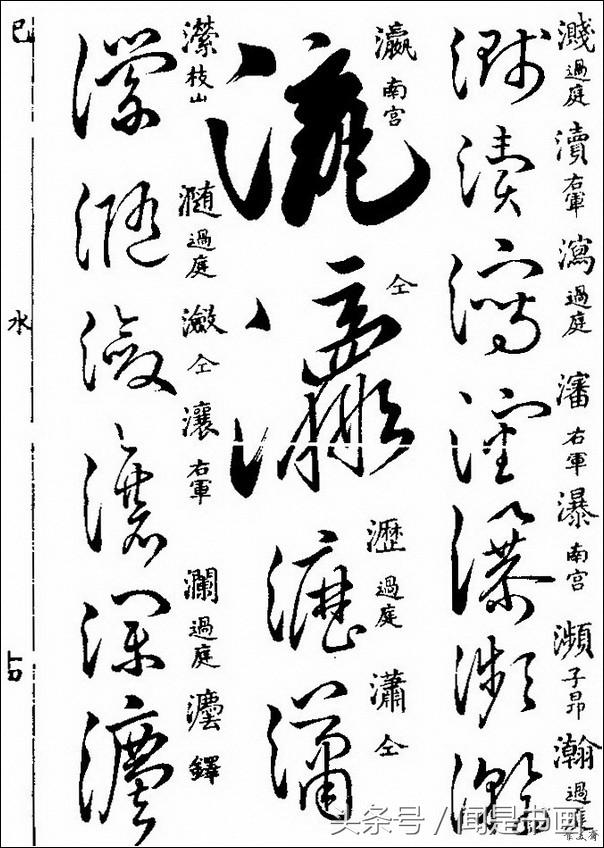 濺 過庭
瀆 右軍
瀉 過庭
瀋 右軍
瀑 南宮
瀕 子昂
瀚 過庭
瀛 南宮
仝
瀝 過庭
瀟 仝
瀠 枝山
過庭
瀲 仝
瀼 右軍
瀾 過庭
鐸
巳
水
占
头条号 / 闻是书画